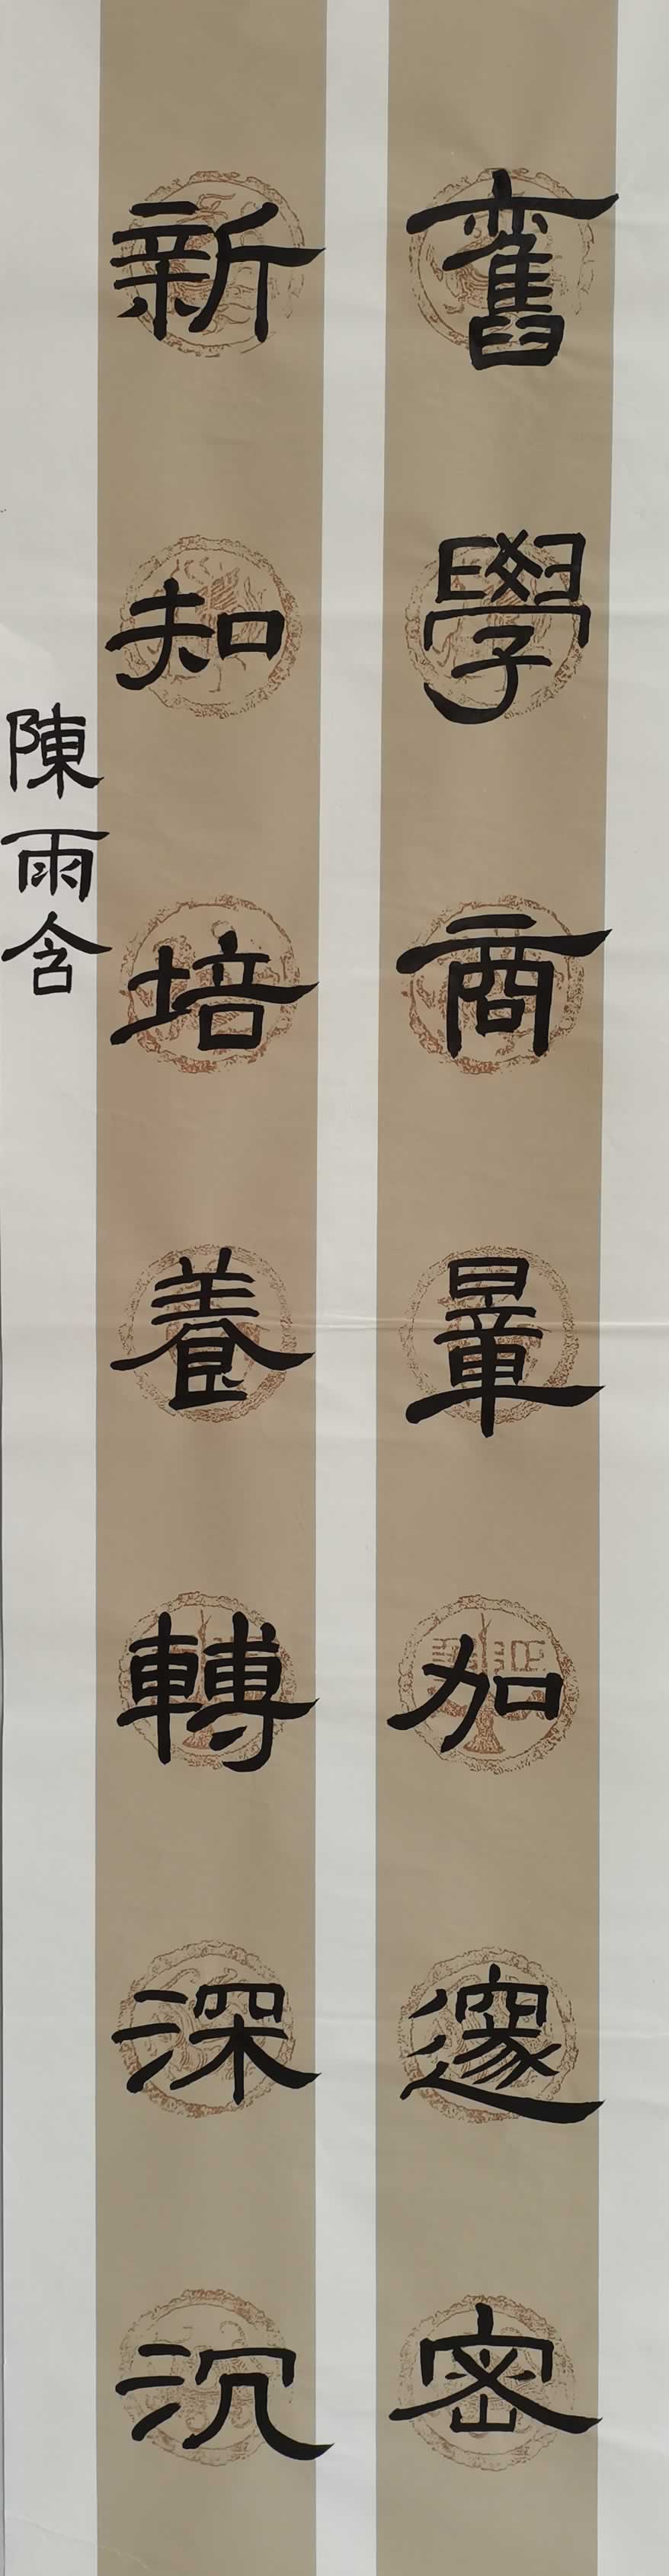 舊學商量加邃密
新知培養轉深沉
陳雨含